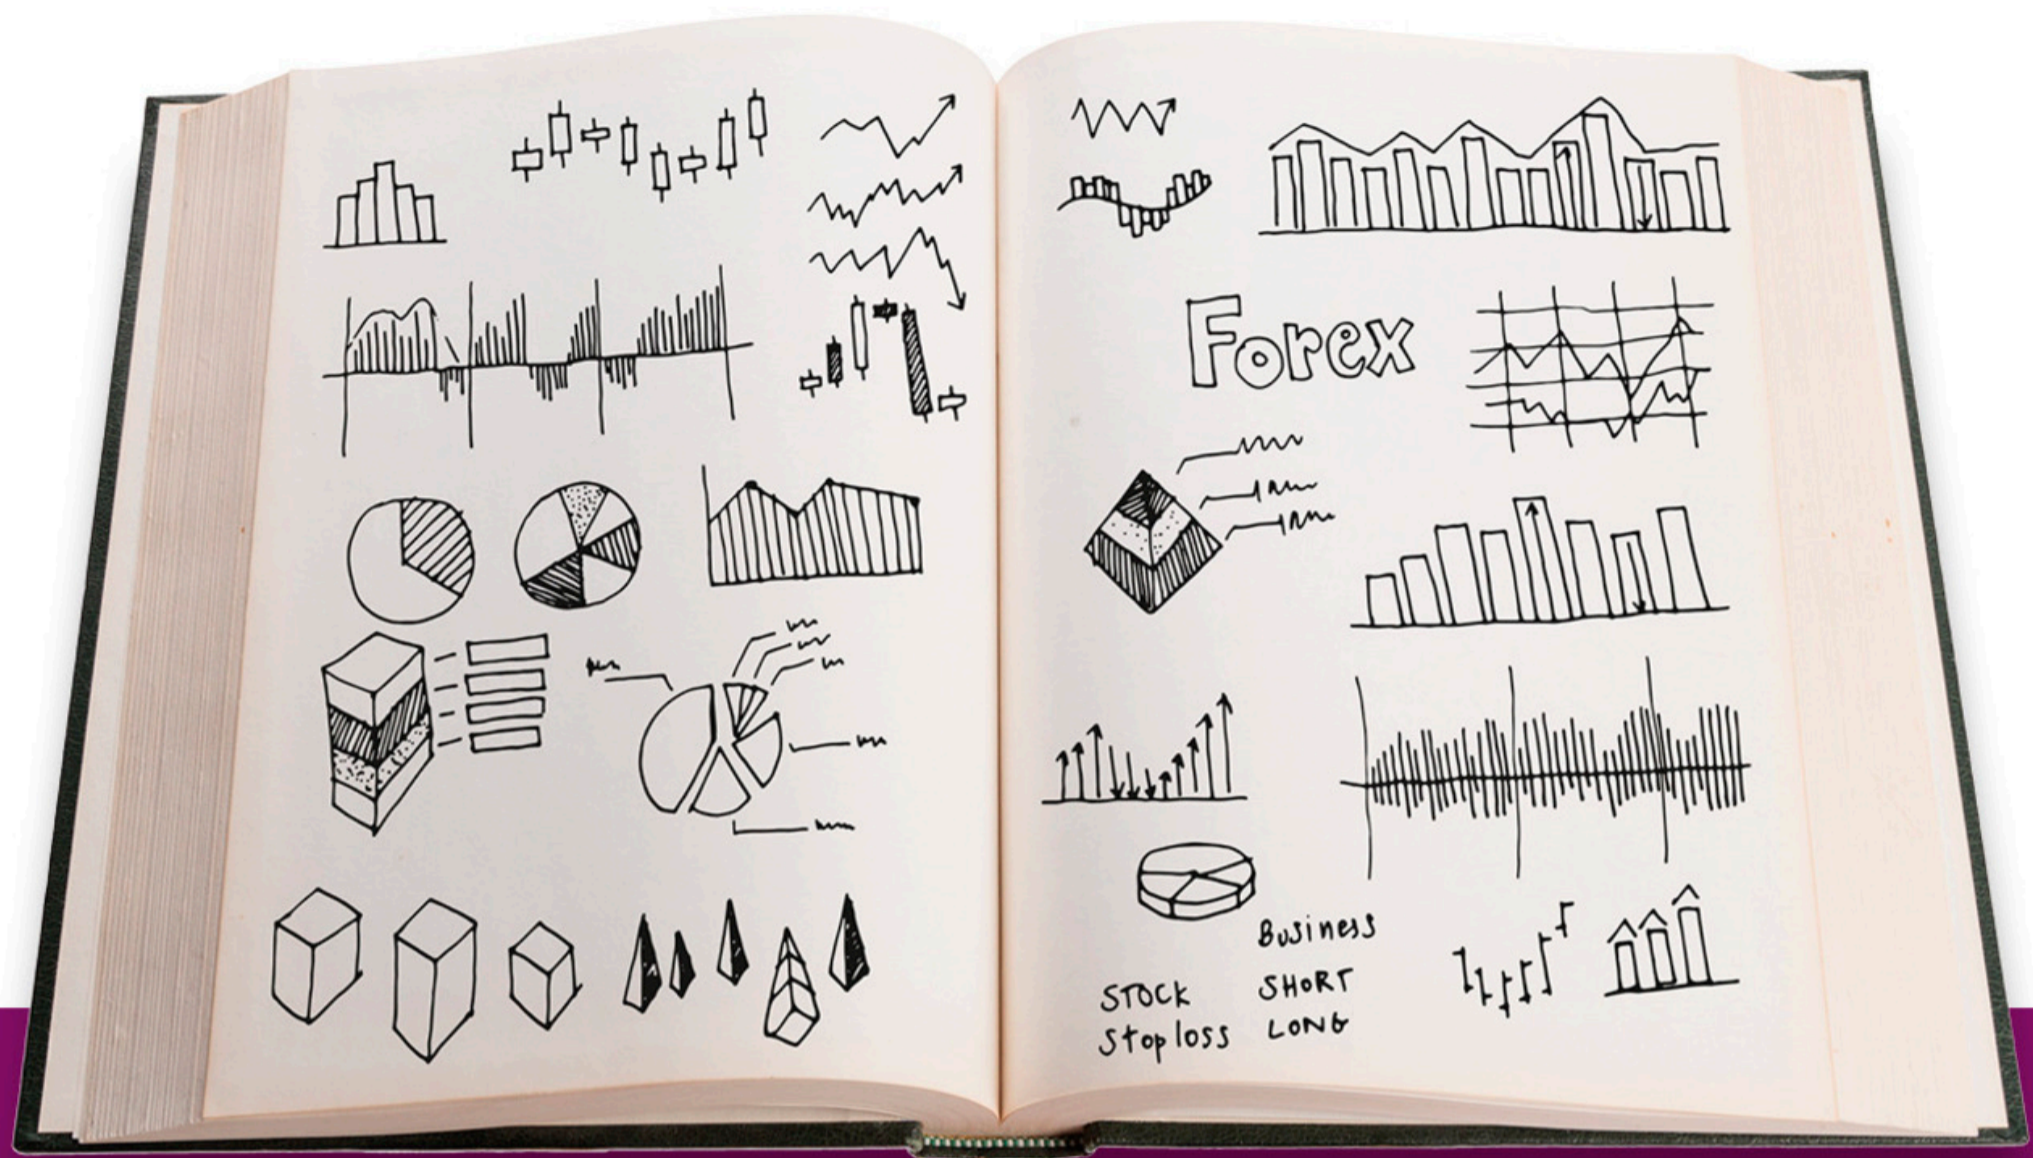 Forex
Business
STOCK
SHORT
Stop loss
LONG